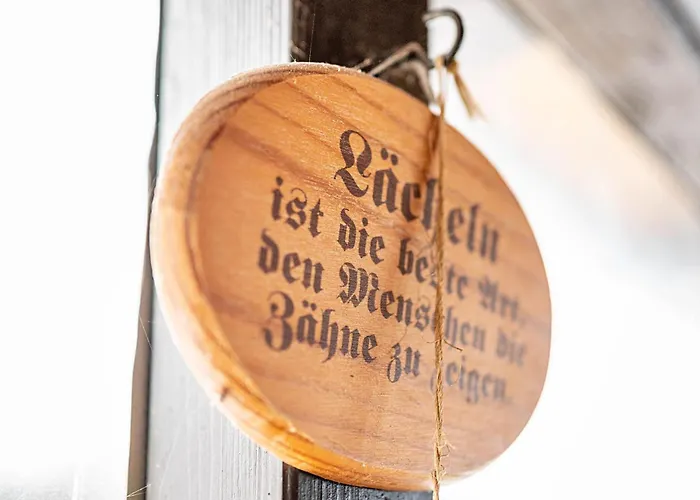 Lächeln
ist die beste Art,
den Menschen die
Zähne zu zeigen.